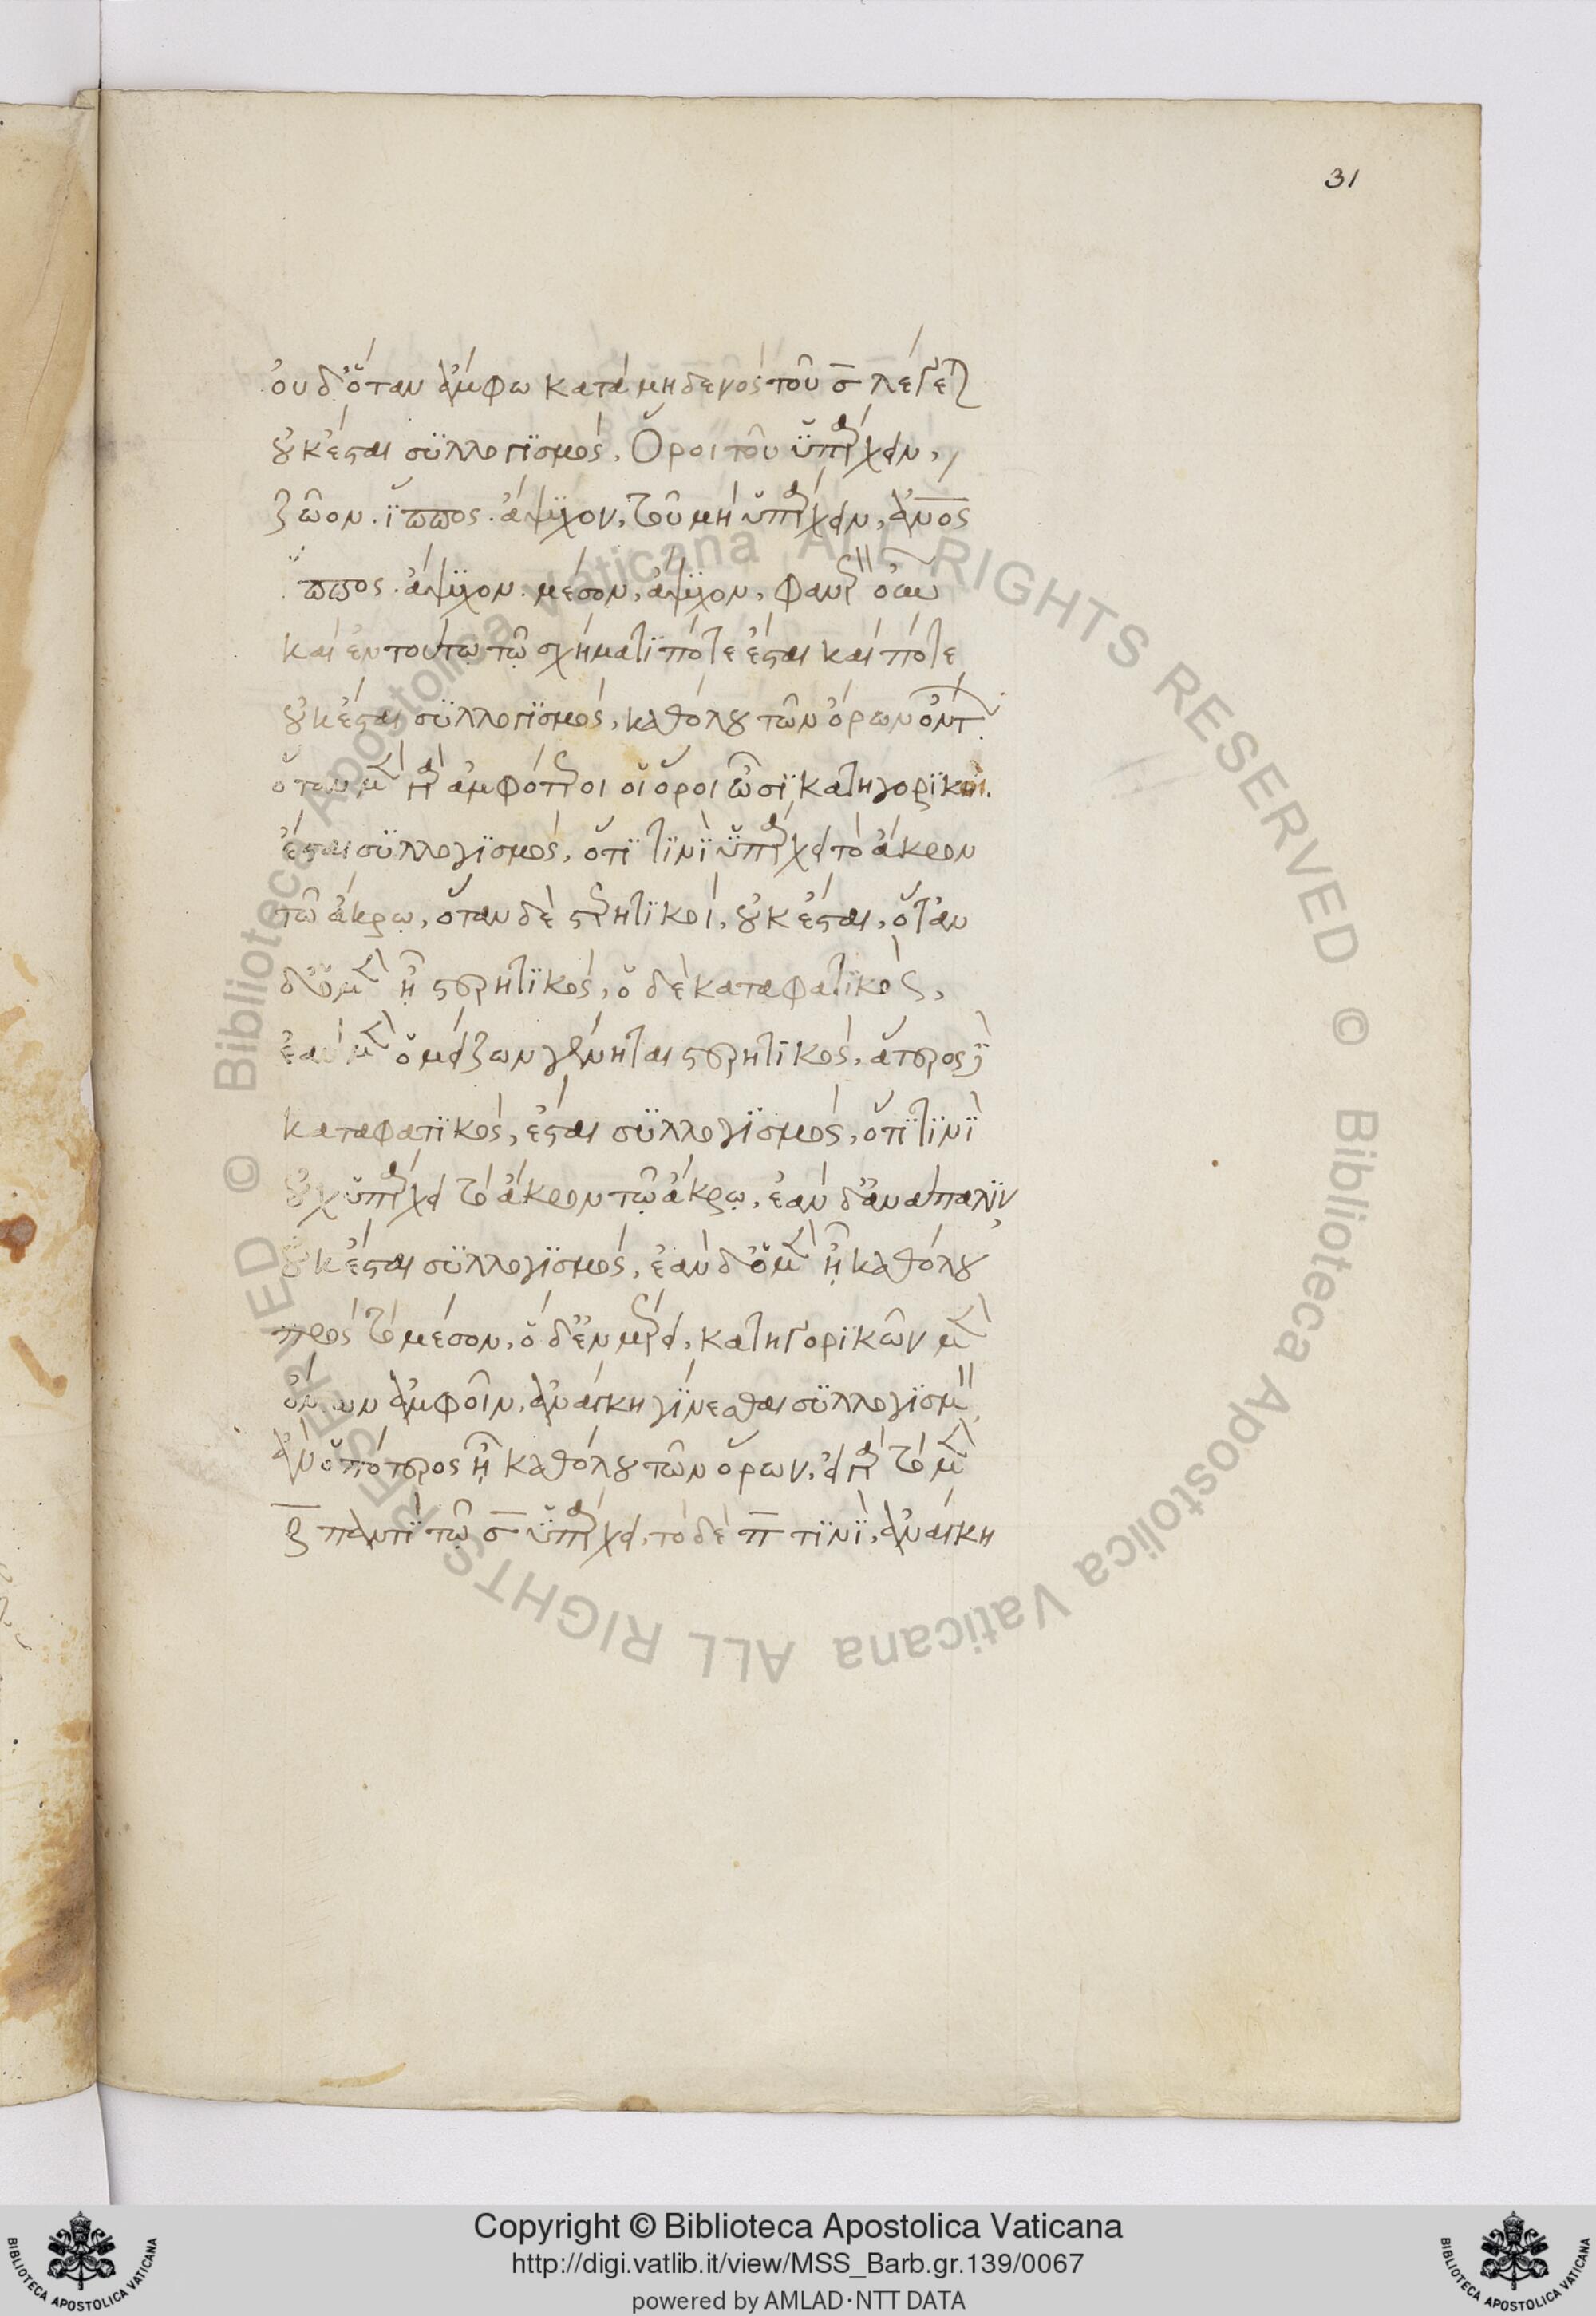 31
ὀυδ' ὅταν ἄμφω κατὰ μηδενὸς τοῦ σ̅ λέγετ
οὐκ ἔσται συλλογισμός, Ὅροι τοῦ ὑπάρχειν,
ζῶον. ἵππος. ἄψυχον, τοῦ μὴ ὑπάρχειν, ἄν̅ος
ἵππος. ἄψυχον. μέσον, ἄψυχον, φανερ οὖν
καὶ ἐν τούτω τῶ σχήματι πότε ἔσται καὶ πότε
οὐκ ἔσται συλλογισμός, καθόλου τῶν ὅρων ὄντ
ὅταν μὲν γὰρ ἀμφότεροι οἱ ὅροι ὦσι κατηγορικοί.
ἔσται συλλογισμός, ὅτι τινὶ ὑπάρχει τὸ ἄκρον
τῶ ἄκρω, ὅταν δὲ στερητικοί, οὐκ ἔσται, ὅταν
δ' ὁ μὲν ἦ στερητικός, ὁ δὲ καταφατικός,
ἐὰν μὲν ὁ μείζων γένηται στερητικός, ἅτερος δὲ
καταφατικός, ἔσται συλλογισμός, ὅτι τινὶ
οὐχ ὑπάρχει τὸ ἄκρον τῶ ἄκρω, ἐὰν δ' ἀνάπαλιν,
οὐκ ἔσται συλλογισμός, ἐὰν δ' ὁ μὲν ἦ καθόλου
πρὸς τὸ μέσον, ὁ δ' ἐν μέρει, κατηγορικῶν μὲν
ὄντων ἀμφοῖν, ἀνάγκη γίνεσθαι συλλογισμ
ἂν ὁποτεροσ ἦ καθόλου τῶν ὅρων, εἰ γὰρ τὸ μὲν
ρ̅ παντὶ τῶ σ̅ ὑπάρχει, τὸ δὲ π̅ τινὶ, ἀνάγκη
Copyright © Biblioteca Apostolica Vaticana
http://digi.vatlib.it/view/MSS_Barb.gr.139/0067
powered by AMLAD·NTT DATA